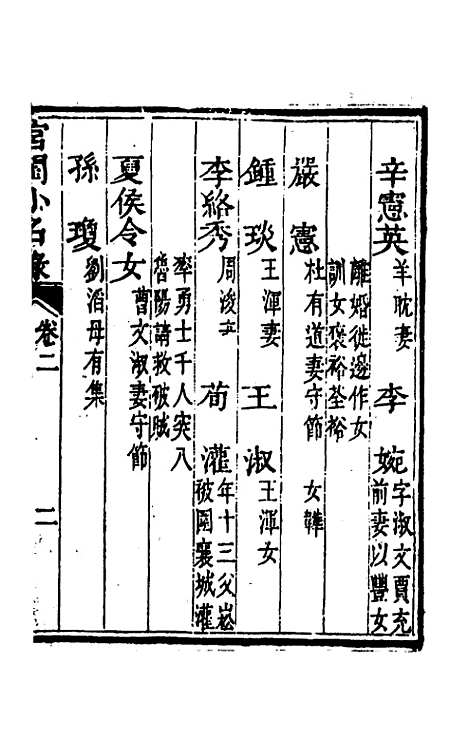 辛憲英 羊耽妻 李婉 字淑文賈充前妻以豐女
離婚徙邊作女訓女褒裕荃裕
嚴憲 杜有道妻守節 女韡
鍾琰 王渾妻 王淑 王渾女
李絡秀 周浚妻 荀灌 年十三父崧被圍襄城灌
率勇士千人突入魯陽請救破賊
夏侯令女 曹文淑妻守節
孫瓊 劉滔母有集
宮閨小名錄 卷二 二